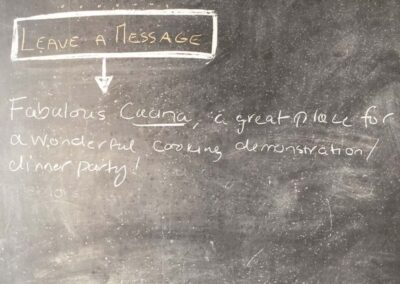 LEAVE A MESSAGE
Fabulous Cucina, a great place for
a wonderful cooking demonstration/
dinner party!